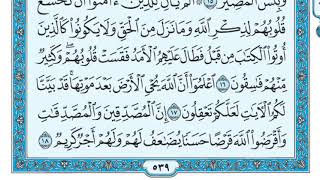 وَبِئْسَ ٱلْمَصِيرُ ١٥ ۞ أَلَمْ يَأْنِ لِلَّذِينَ ءَامَنُوٓا۟ أَن تَخْشَعَ
قُلُوبُهُمْ لِذِكْرِ ٱللَّهِ وَمَا نَزَلَ مِنَ ٱلْحَقِّ وَلَا يَكُونُوا۟ كَٱلَّذِينَ
أُوتُوا۟ ٱلْكِتَٰبَ مِن قَبْلُ فَطَالَ عَلَيْهِمُ ٱلْأَمَدُ فَقَسَتْ قُلُوبُهُمْ ۖ وَكَثِيرٌ
مِّنْهُمْ فَٰسِقُونَ ١٦ ٱعْلَمُوٓا۟ أَنَّ ٱللَّهَ يُحْىِ ٱلْأَرْضَ بَعْدَ مَوْتِهَا ۚ قَدْ بَيَّنَّا
لَكُمُ ٱلْءَايَٰتِ لَعَلَّكُمْ تَعْقِلُونَ ١٧ إِنَّ ٱلْمُصَّدِّقِينَ وَٱلْمُصَّدِّقَٰتِ
وَأَقْرَضُوا۟ ٱللَّهَ قَرْضًا حَسَنًا يُضَٰعَفُ لَهُمْ وَلَهُمْ أَجْرٌ كَرِيمٌ ١٨
٥٣٩